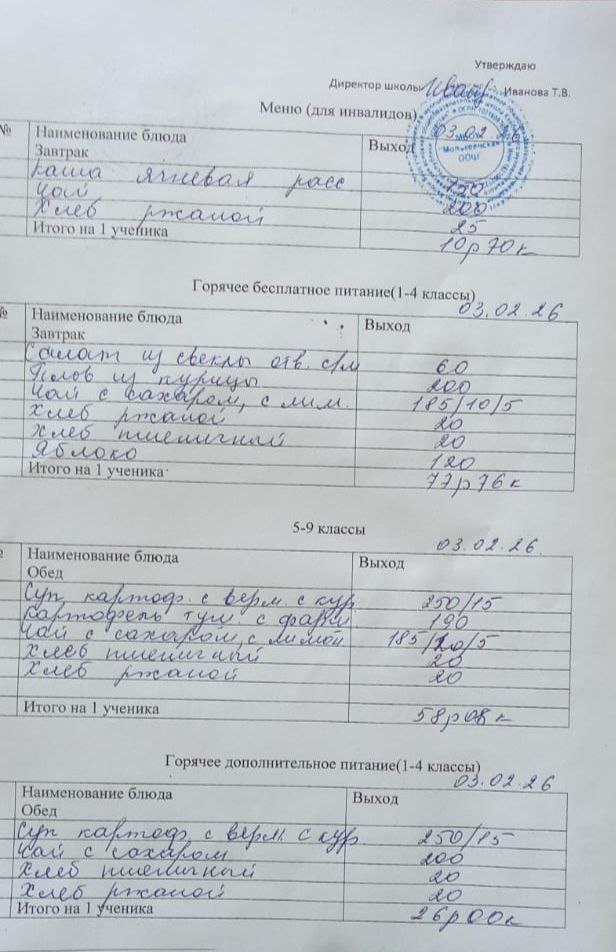 Утверждаю
Директор школы Иванова Т.В.
Меню (для инвалидов) 03.02.26
№ Наименование блюда Выход
Завтрак
Каша ячневая расс 150
Чай 200
Хлеб ржаной 25
Итого на 1 ученика 10р70к
Горячее бесплатное питание(1-4 классы)
03.02.26
№ Наименование блюда Выход
Завтрак
Салат из свеклы отв. с/м 60
Плов из курицы 200
Чай с сахаром, с лим. 185/10/5
Хлеб ржаной 20
Хлеб пшеничный 20
Яблоко 120
Итого на 1 ученика 77р76к
5-9 классы
03.02.26.
Наименование блюда Выход
Обед
Суп картоф. с верм. с кур 250/15
Картофель туш. с фарш 190
Чай с сахаром, с лимон 185/10/5
Хлеб пшеничный 20
Хлеб ржаной 20
Итого на 1 ученика 58р08к
Горячее дополнительное питание(1-4 классы)
03.02.26
Наименование блюда Выход
Обед
Суп картоф. с верм. с кур 250/15
Чай с сахаром 200
Хлеб пшеничный 20
Хлеб ржаной 20
Итого на 1 ученика 26р00к